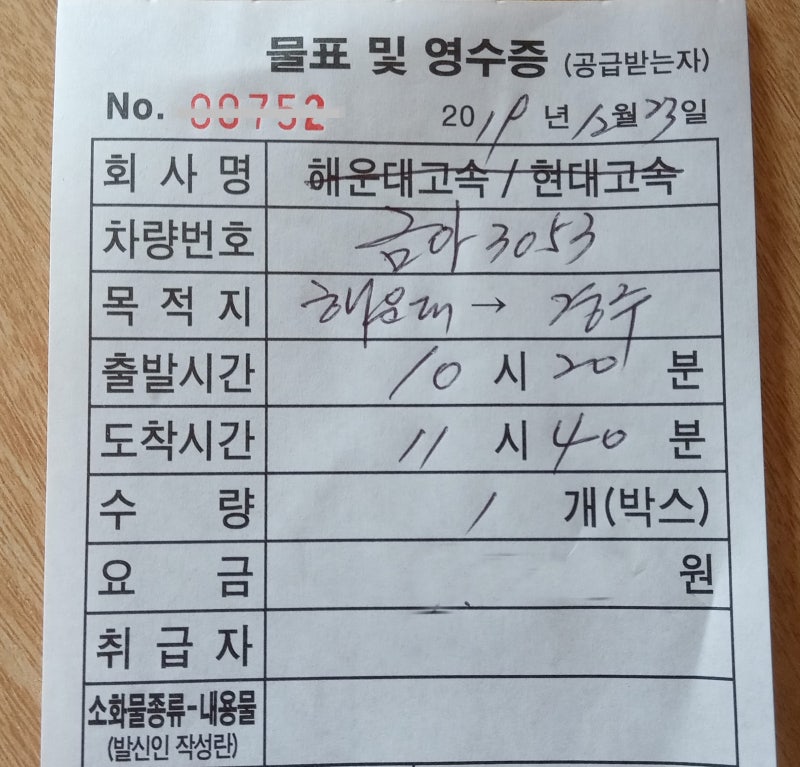 물표 및 영수증 (공급받는자)
No. 00752 2019 년 12월 23일
회 사 명 해운대고속 / 현대고속
차량번호 금아 3053
목 적 지 해운대 → 경주
출발시간 10 시 20 분
도착시간 11 시 40 분
수 량 1 개(박스)
요 금 원
취 급 자
소화물종류-내용물
(발신인 작성란)